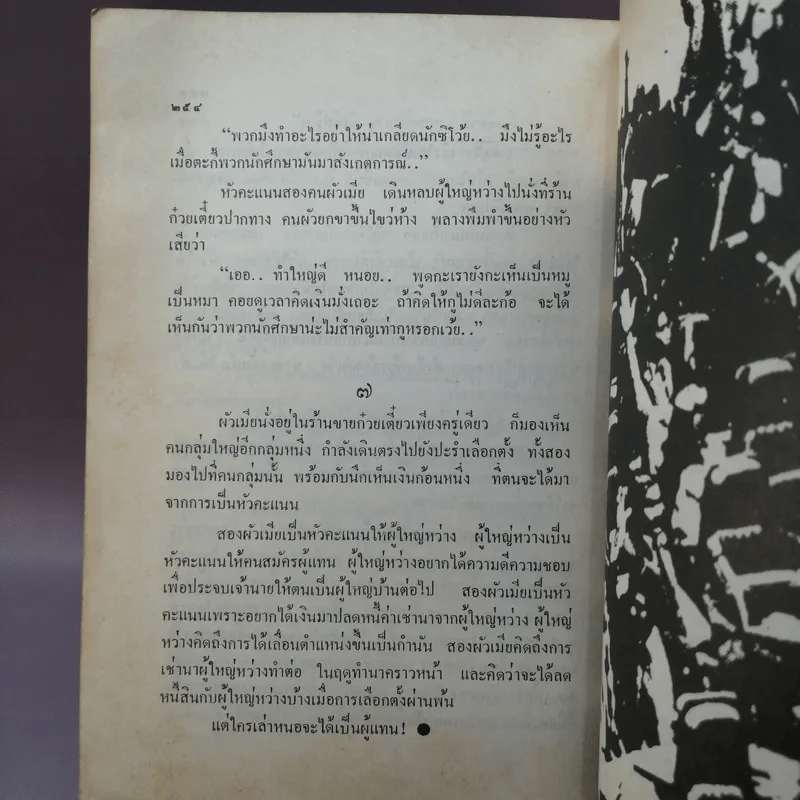 ๒๕๔
“พวกมึงทำอะไรอย่าให้น่าเกลียดนักซิโว้ย.. มึงไม่รู้อะไร
เมื่อตะกี้พวกนักศึกษามันมาสังเกตการณ์..”
หัวคะแนนสองคนผัวเมีย เดินหลบผู้ใหญ่หว่างไปนั่งที่ร้าน
ก๋วยเตี๋ยวปากทาง คนผัวยกขาขึ้นไขว่ห้าง พลางพึมพำขึ้นอย่างหัว
เสียว่า
“เออ.. ทำใหญ่ดี หนอย.. พูดกะเรายังกะเห็นเป็นหมู
เป็นหมา คอยดูเวลาคิดเงินมั่งเถอะ ถ้าคิดให้กูไม่ดีละก้อ จะได้
เห็นกันว่าพวกนักศึกษาน่ะไม่สำคัญเท่ากูหรอกเว้ย..”
๗
ผัวเมียนั่งอยู่ในร้านขายก๋วยเตี๋ยวเพียงครู่เดียว ก็มองเห็น
คนกลุ่มใหญ่อีกกลุ่มหนึ่ง กำลังเดินตรงไปยังปะรำเลือกตั้ง ทั้งสอง
มองไปที่คนกลุ่มนั้น พร้อมกับนึกเห็นเงินก้อนหนึ่ง ที่ตนจะได้มา
จากการเป็นหัวคะแนน
สองผัวเมียเป็นหัวคะแนนให้ผู้ใหญ่หว่าง ผู้ใหญ่หว่างเป็น
หัวคะแนนให้คนสมัครผู้แทน ผู้ใหญ่หว่างอยากได้ความดีความชอบ
เพื่อประจบเจ้านายให้ตนเป็นผู้ใหญ่บ้านต่อไป สองผัวเมียเป็นหัว
คะแนนเพราะอยากได้เงินมาปลดหนี้ค่าเช่านาจากผู้ใหญ่หว่าง ผู้ใหญ่
หว่างคิดถึงการได้เลื่อนตำแหน่งขึ้นเป็นกำนัน สองผัวเมียคิดถึงการ
เช่านาผู้ใหญ่หว่างทำต่อ ในฤดูทำนาคราวหน้า และคิดว่าจะได้ลด
หนี้สินกับผู้ใหญ่หว่างบ้างเมื่อการเลือกตั้งผ่านพ้น
แต่ใครเล่าหนอจะได้เป็นผู้แทน! ●